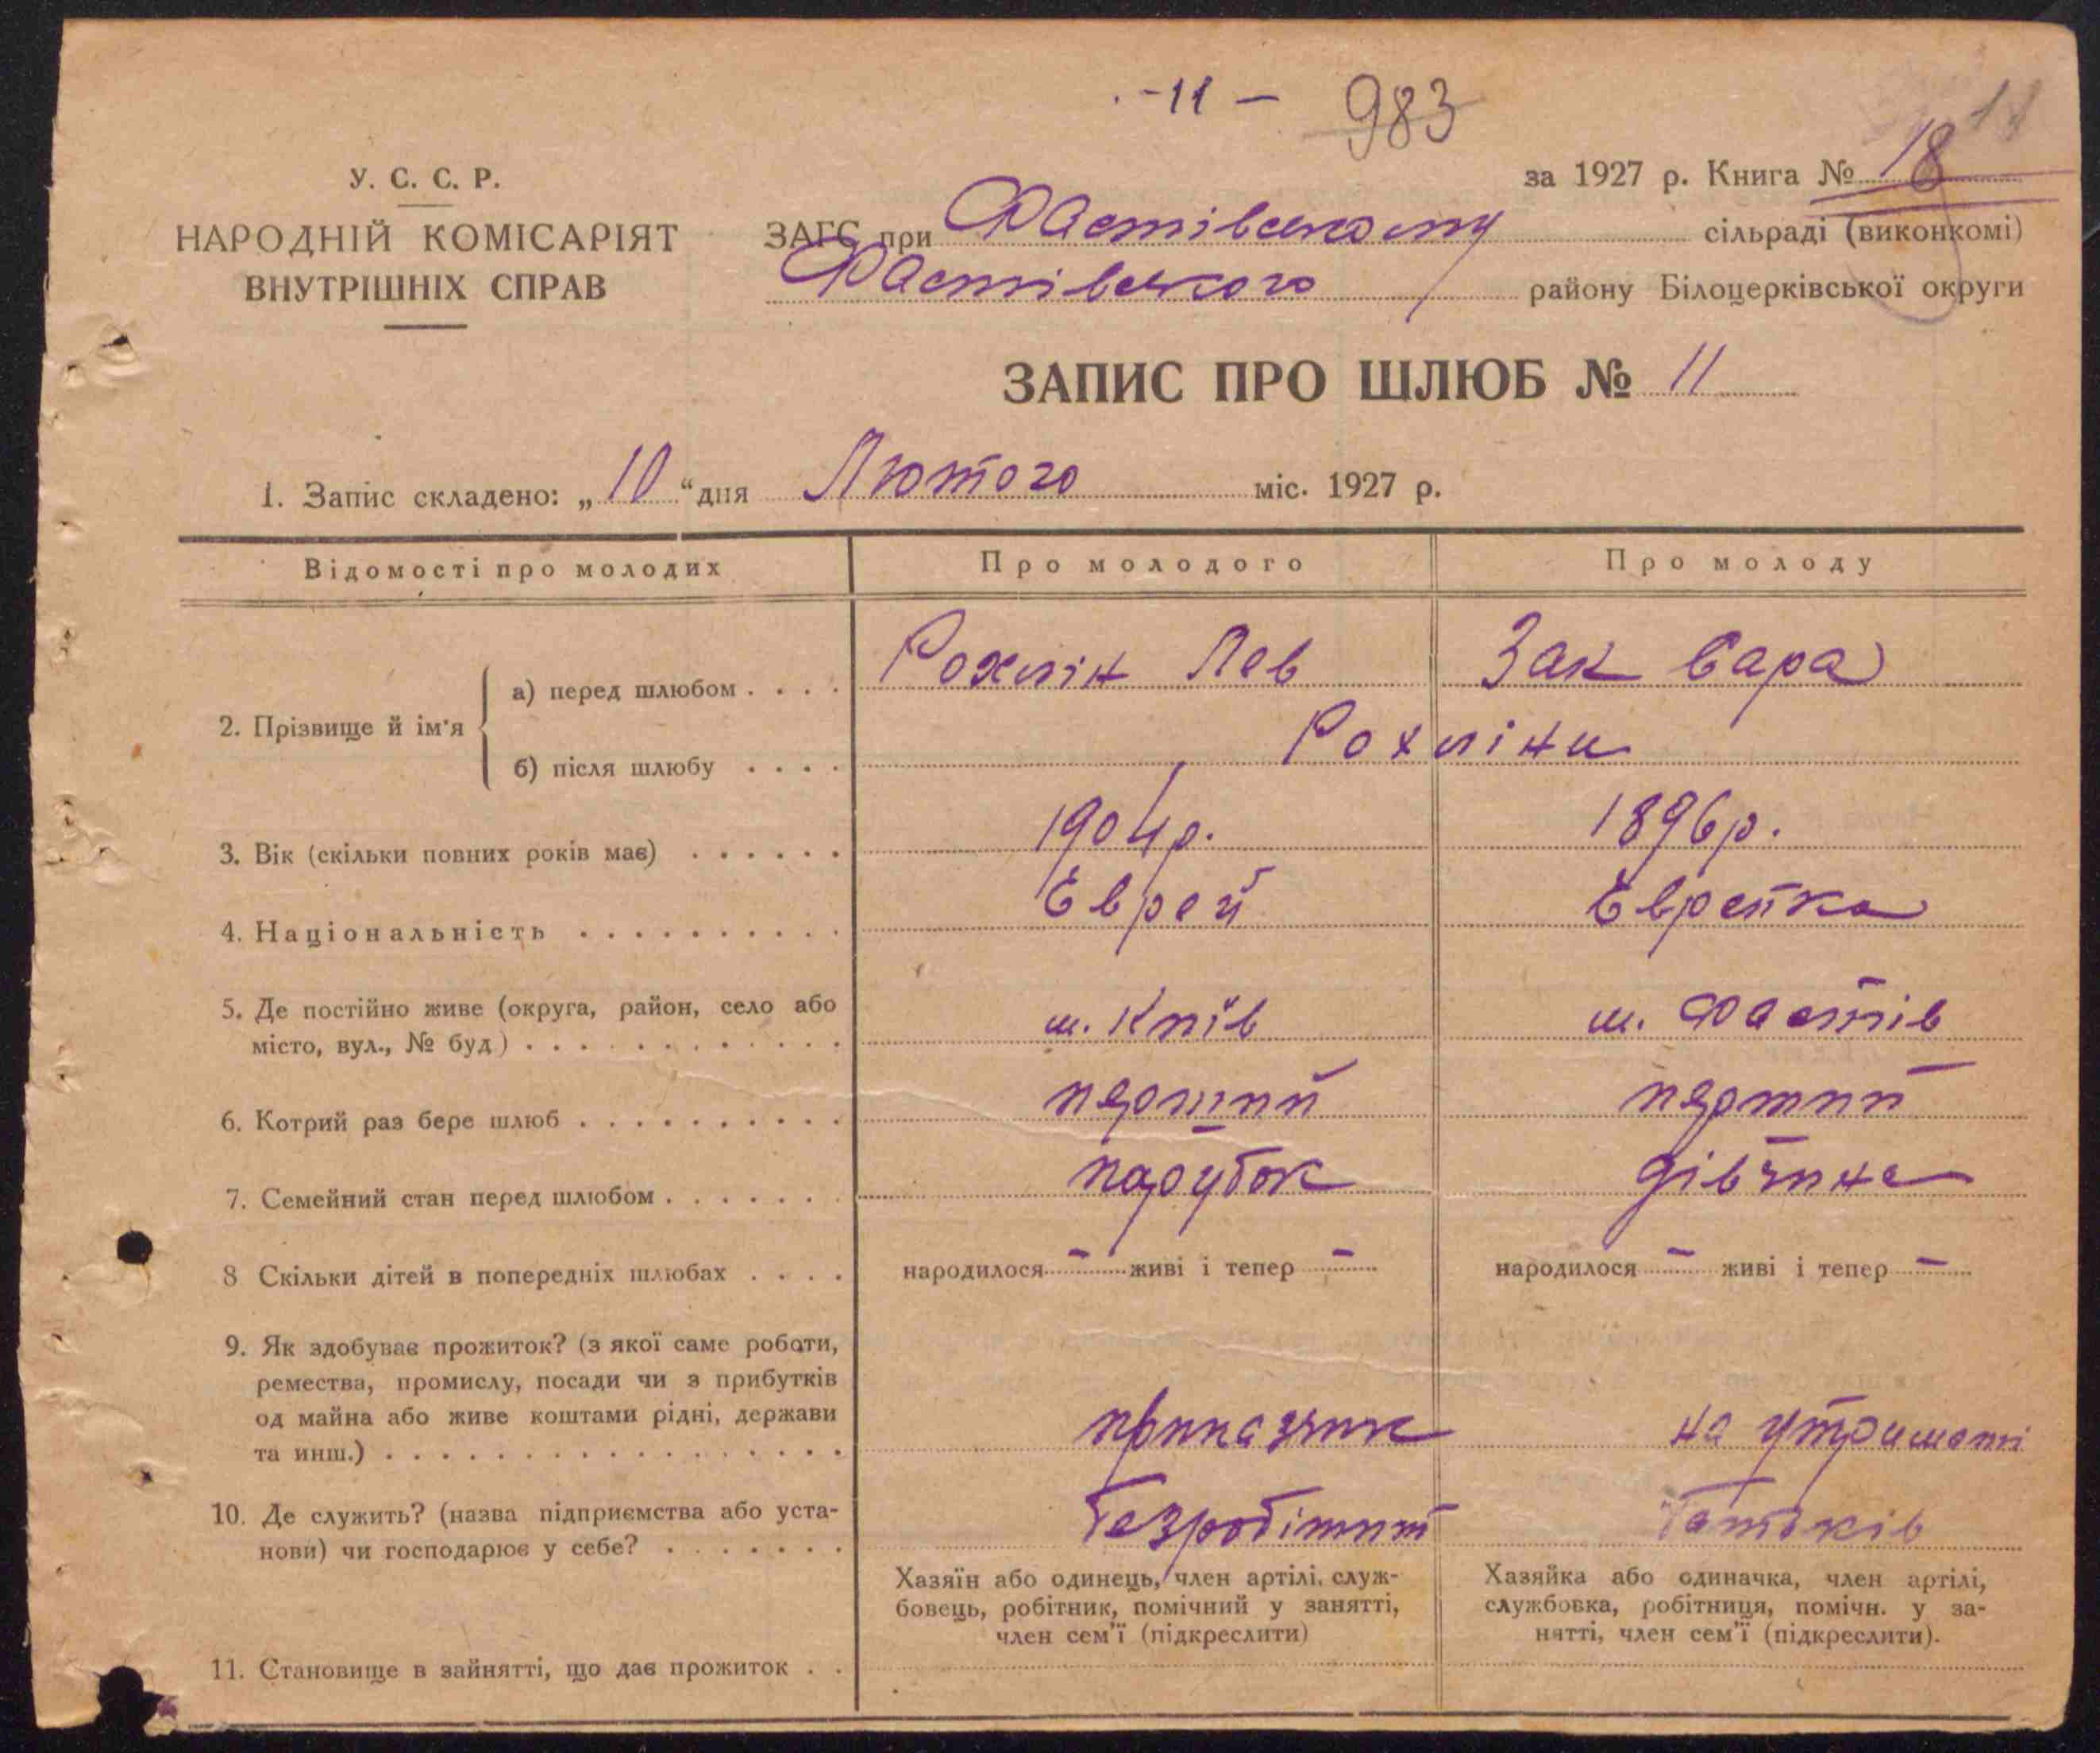 -11- 983
11
У. С. С. Р.
НАРОДНІЙ КОМІСАРІЯТ
ВНУТРІШНІХ СПРАВ
за 1927 р. Книга № 18
ЗАГС при Фастівському сільраді (виконкомі)
Фастівського району Білоцерківської округи
ЗАПИС ПРО ШЛЮБ № 11
1. Запис складено: „10“ дня Лютого міс. 1927 р.
Відомості про молодих Про молодого Про молоду
2. Прізвище й ім'я
а) перед шлюбом . . . . Рохлін Лев Зак Сара
б) після шлюбу . . . . Рохліни
3. Вік (скільки повних років має) . . . . . . 1904р. 1896р.
4. Національність . . . . . . . . . . Еврей Еврейка
5. Де постійно живе (округа, район, село або
місто, вул., № буд) . . . . . . . . . . . . м. Київ м. Фастів
6. Котрий раз бере шлюб . . . . . . . . . . перший перший
7. Семейний стан перед шлюбом . . . . . . . парубок дівчина
8 Скільки дітей в попередніх шлюбах . . . . народилося — живі і тепер — народилося — живі і тепер —
9. Як здобуває прожиток? (з якої саме роботи,
ремества, промислу, посади чи з прибутків
од майна або живе коштами рідні, держави
та инш.) . . . . . . . . . . . . . . . . . приказчик на утриманні
10. Де служить? (назва підприємства або уста-
нови) чи господарює у себе? . . . . . . . безробітний батьків
Хазяїн або одинець, член артілі, служ-
бовець, робітник, помічний у занятті,
член сем'ї (підкреслити)
Хазяйка або одиначка, член артілі,
службовка, робітниця, помічн. у за-
нятті, член сем'ї (підкреслити).
11. Становище в зайнятті, що дає прожиток . .